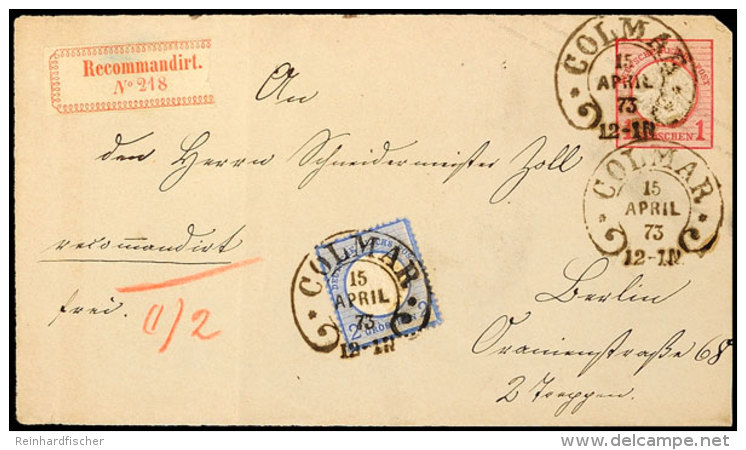 Recommandirt.
No 218
COLMAR
15
APRIL
73
12-1N
GROSCHEN 1
COLMAR
15
APRIL
73
12-1N
An
den Herrn Schneidermeister Zoll
recommandirt
frei.
COLMAR
15
APRIL
73
12-1N
2 GROSCHEN 2
Berlin
Oranienstraße 68
2 Treppen.
Reinhardfischer
delcampe.net